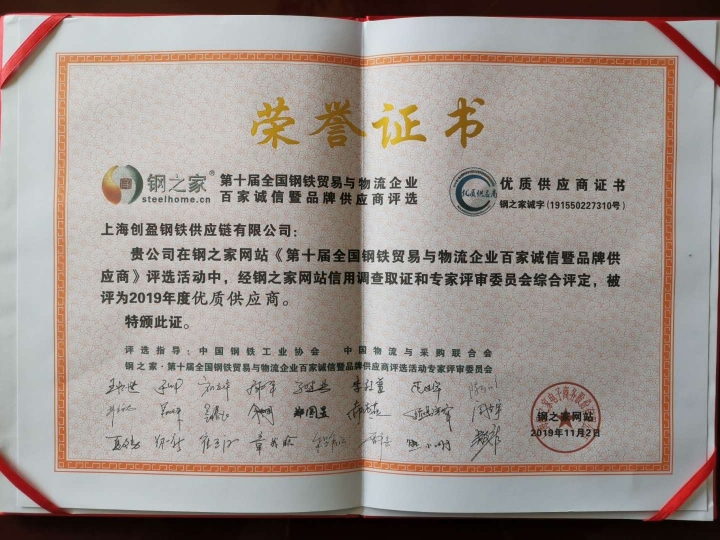 荣誉证书
钢之家®
steelhome.cn
第十届全国钢铁贸易与物流企业
百家诚信暨品牌供应商评选
优质供应商
优质供应商证书
钢之家诚字(191550227310号)
上海创盈钢铁供应链有限公司：
贵公司在钢之家网站《第十届全国钢铁贸易与物流企业百家诚信暨品牌供
应商》评选活动中，经钢之家网站信用调查取证和专家评审委员会综合评定，被
评为2019年度优质供应商。
特颁此证。
评选指导：中国钢铁工业协会 中国物流与采购联合会
钢之家·第十届全国钢铁贸易与物流企业百家诚信暨品牌供应商评选活动专家评审委员会
钢之家网站
2019年11月2日